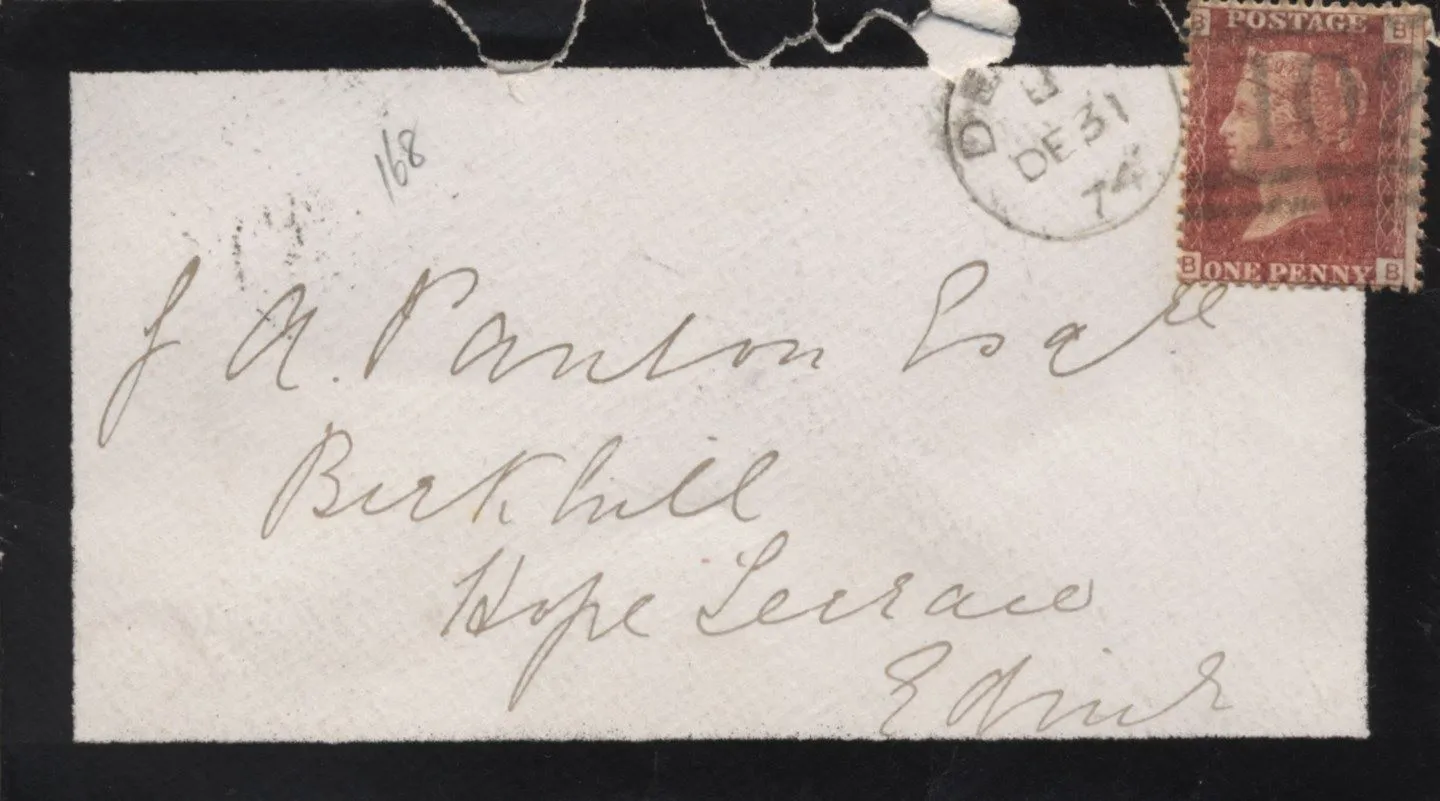 B POSTAGE B
102
DE
E
DE 31
74
B ONE PENNY B
168
J A. Panton Esqre
Birkhill
Hope Terrace
Edinr